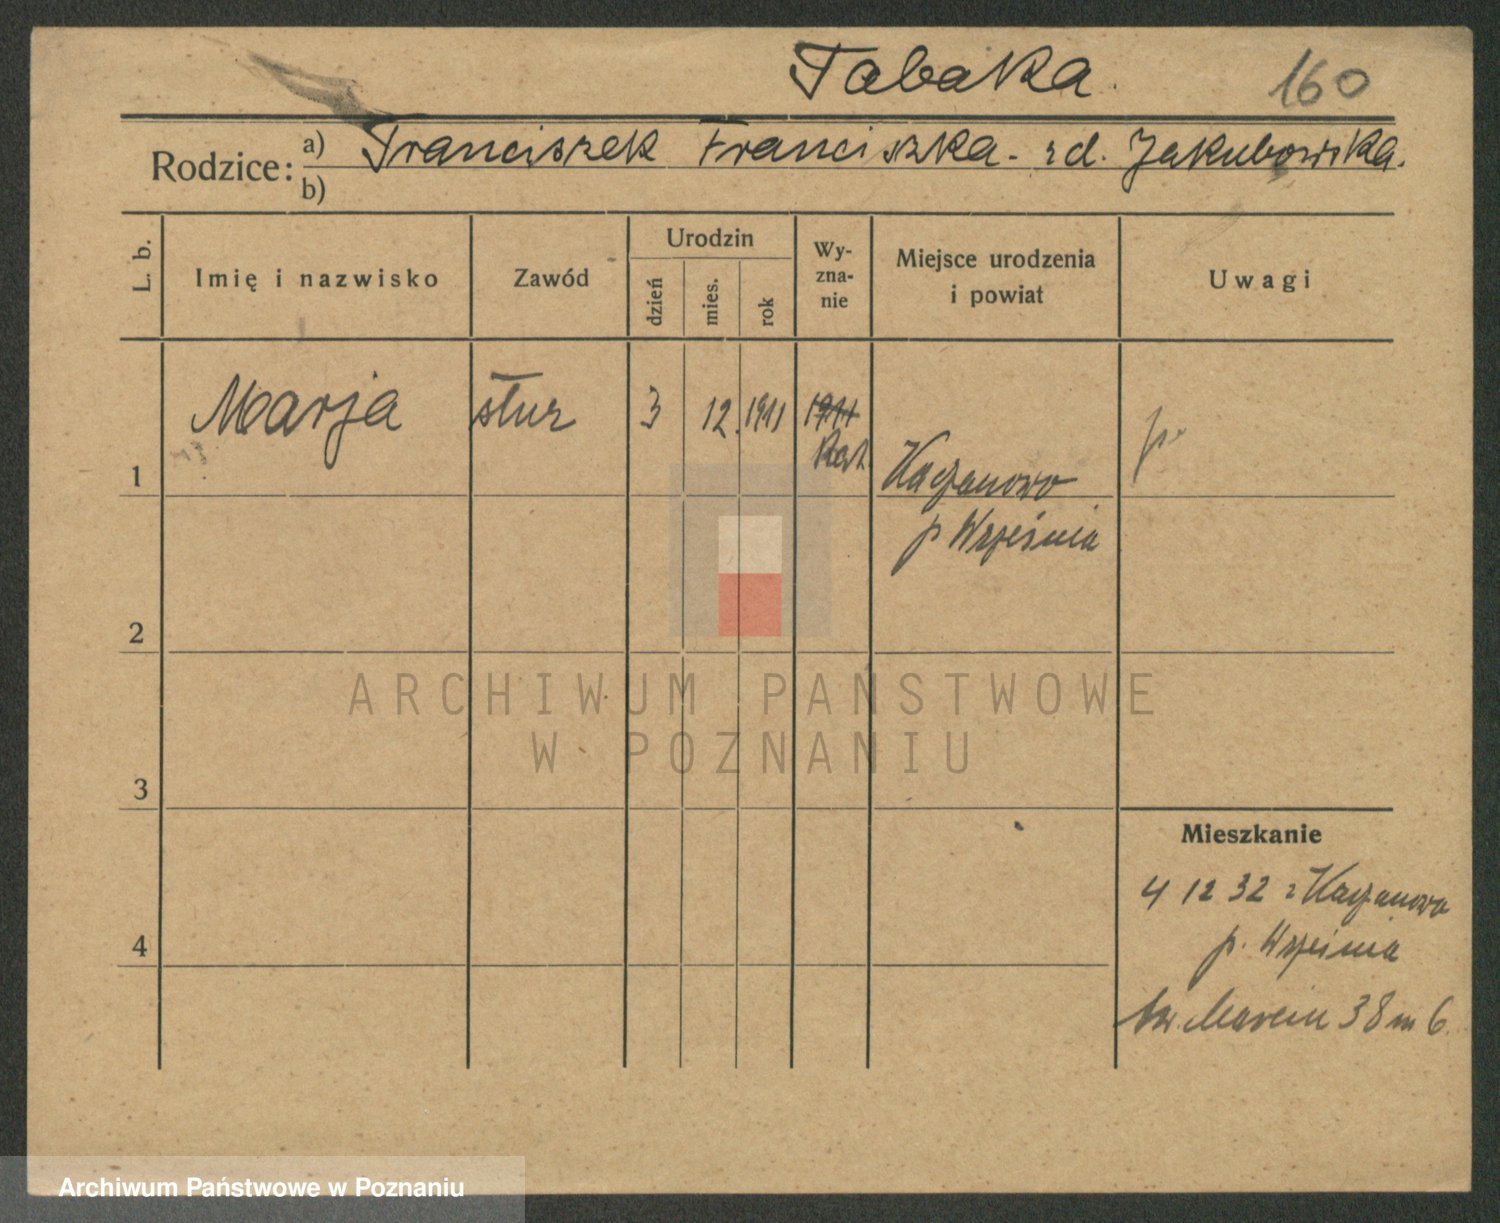 Tabaka. 160
Rodzice: a) Franciszek Franciszka - zd. Jakubowska.
b)
L. b.
Imię i nazwisko
Zawód
Urodzin
dzień
mies.
rok
Wy-
zna-
nie
Miejsce urodzenia
i powiat
Uwagi
1 Marja służ 3 12. 1911 1911
Kat.
Kaczanowo
p Września
2
3
4
Mieszkanie
4 12 32 z Kaczanowa
p. Września
św. Marcin 38 m 6.
ARCHIWUM PAŃSTWOWE
W POZNANIU
Archiwum Państwowe w Poznaniu